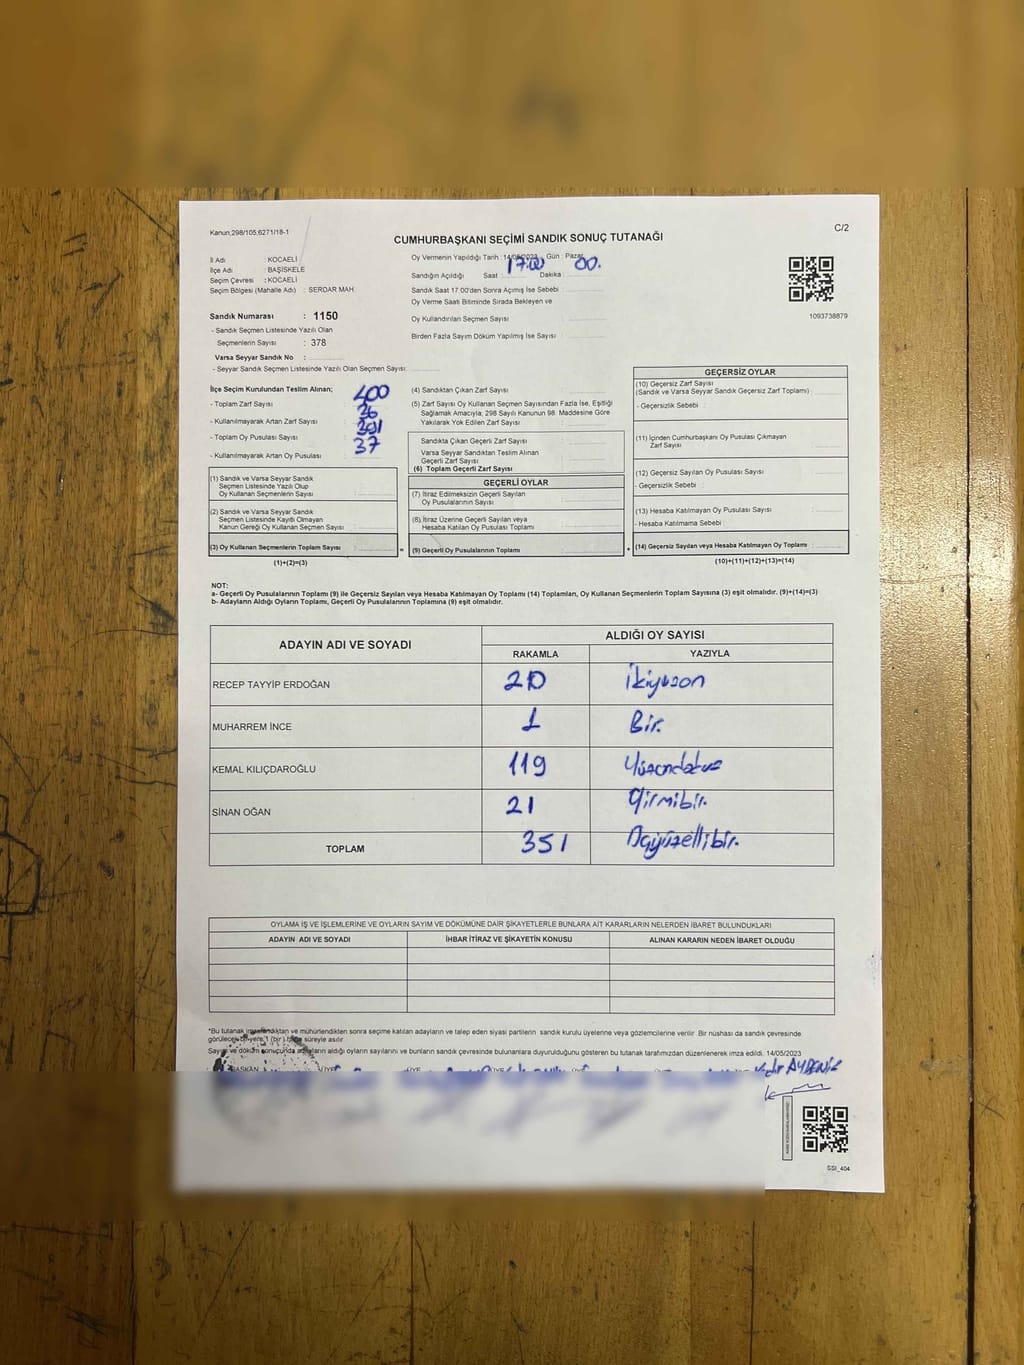 Kanun,298/105,6271/18-1
C/2
CUMHURBAŞKANI SEÇİMİ SANDIK SONUÇ TUTANAĞI
İl Adı : KOCAELİ
İlçe Adı : BAŞİSKELE
Seçim Çevresi : KOCAELİ
Seçim Bölgesi (Mahalle Adı) : SERDAR MAH.
Sandık Numarası : 1150
- Sandık Seçmen Listesinde Yazılı Olan
Seçmenlerin Sayısı : 378
Varsa Seyyar Sandık No :
- Seyyar Sandık Seçmen Listesinde Yazılı Olan Seçmen Sayısı:
Oy Vermenin Yapıldığı Tarih : 14/05/2023 Gün : Pazar
Sandığın Açıldığı Saat : 17:00 Dakika : 00.
Sandık Saat 17:00'den Sonra Açımış İse Sebebi :
Oy Verme Saati Bitiminde Sırada Bekleyen ve
Oy Kullandırılan Seçmen Sayısı :
Birden Fazla Sayım Döküm Yapılmış İse Sayısı :
1093738879
İlçe Seçim Kurulundan Teslim Alınan;
- Toplam Zarf Sayısı : 400
- Kullanılmayarak Artan Zarf Sayısı : 36
- Toplam Oy Pusulası Sayısı : 391
- Kullanılmayarak Artan Oy Pusulası : 37
(1) Sandık ve Varsa Seyyar Sandık
Seçmen Listesinde Yazılı Olup
Oy Kullanan Seçmenlerin Sayısı :
(2) Sandık ve Varsa Seyyar Sandık
Seçmen Listesinde Kayıtlı Olmayan
Kanun Gereği Oy Kullanan Seçmen Sayısı :
(3) Oy Kullanan Seçmenlerin Toplam Sayısı :
(1)+(2)=(3)
(4) Sandıktan Çıkan Zarf Sayısı :
(5) Zarf Sayısı Oy Kullanan Seçmen Sayısından Fazla İse, Eşitliği
Sağlamak Amacıyla; 298 Sayılı Kanunun 98. Maddesine Göre
Yakılarak Yok Edilen Zarf Sayısı :
Sandıkta Çıkan Geçerli Zarf Sayısı :
Varsa Seyyar Sandıktan Teslim Alınan
Geçerli Zarf Sayısı :
(6) Toplam Geçerli Zarf Sayısı :
GEÇERLİ OYLAR
(7) İtiraz Edilmeksizin Geçerli Sayılan
Oy Pusulalarının Sayısı :
(8) İtiraz Üzerine Geçerli Sayılan veya
Hesaba Katılan Oy Pusulası Toplamı :
= (9) Geçerli Oy Pusulalarının Toplamı :
GEÇERSİZ OYLAR
(10) Geçersiz Zarf Sayısı
(Sandık ve Varsa Seyyar Sandık Geçersiz Zarf Toplamı) :
- Geçersizlik Sebebi :
(11) İçinden Cumhurbaşkanı Oy Pusulası Çıkmayan
Zarf Sayısı :
(12) Geçersiz Sayılan Oy Pusulası Sayısı :
- Geçersizlik Sebebi :
(13) Hesaba Katılmayan Oy Pusulası Sayısı :
- Hesaba Katılmama Sebebi :
+ (14) Geçersiz Sayılan veya Hesaba Katılmayan Oy Toplamı :
(10)+(11)+(12)+(13)=(14)
NOT:
a- Geçerli Oy Pusulalarının Toplamı (9) ile Geçersiz Sayılan veya Hesaba Katılmayan Oy Toplamı (14) Toplamları, Oy Kullanan Seçmenlerin Toplam Sayısına (3) eşit olmalıdır. (9)+(14)=(3)
b- Adayların Aldığı Oyların Toplamı, Geçerli Oy Pusulalarının Toplamına (9) eşit olmalıdır.
ADAYIN ADI VE SOYADI ALDIĞI OY SAYISI
RAKAMLA YAZIYLA
RECEP TAYYİP ERDOĞAN 210 İkiyüzon
MUHARREM İNCE 1 Bir.
KEMAL KILIÇDAROĞLU 119 Yüzondokuz
SİNAN OĞAN 21 Yirmibir.
TOPLAM 351 Üçyüzellibir.
OYLAMA İŞ VE İŞLEMLERİNE VE OYLARIN SAYIM VE DÖKÜMÜNE DAİR ŞİKAYETLERLE BUNLARA AİT KARARLARIN NELERDEN İBARET BULUNDUKLARI
ADAYIN ADI VE SOYADI İHBAR İTİRAZ VE ŞİKAYETİN KONUSU ALINAN KARARIN NEDEN İBARET OLDUĞU
*Bu tutanak imzalandıktan ve mühürlendikten sonra seçime katılan adayların ve talep eden siyasi partilerin sandık kurulu üyelerine veya gözlemcilerine verilir. Bir nüshası da sandık çevresinde
görülecek bir yere 1 (bir) hafta süreyle asılır.
Sayım ve döküm sonucunda adayların aldığı oyların sayılarını ve bunların sandık çevresinde bulunanlara duyurulduğunu gösteren bu tutanak tarafımızdan düzenlenerek imza edildi. 14/05/2023
BAŞKAN ÜYE ÜYE ÜYE
SSI_404